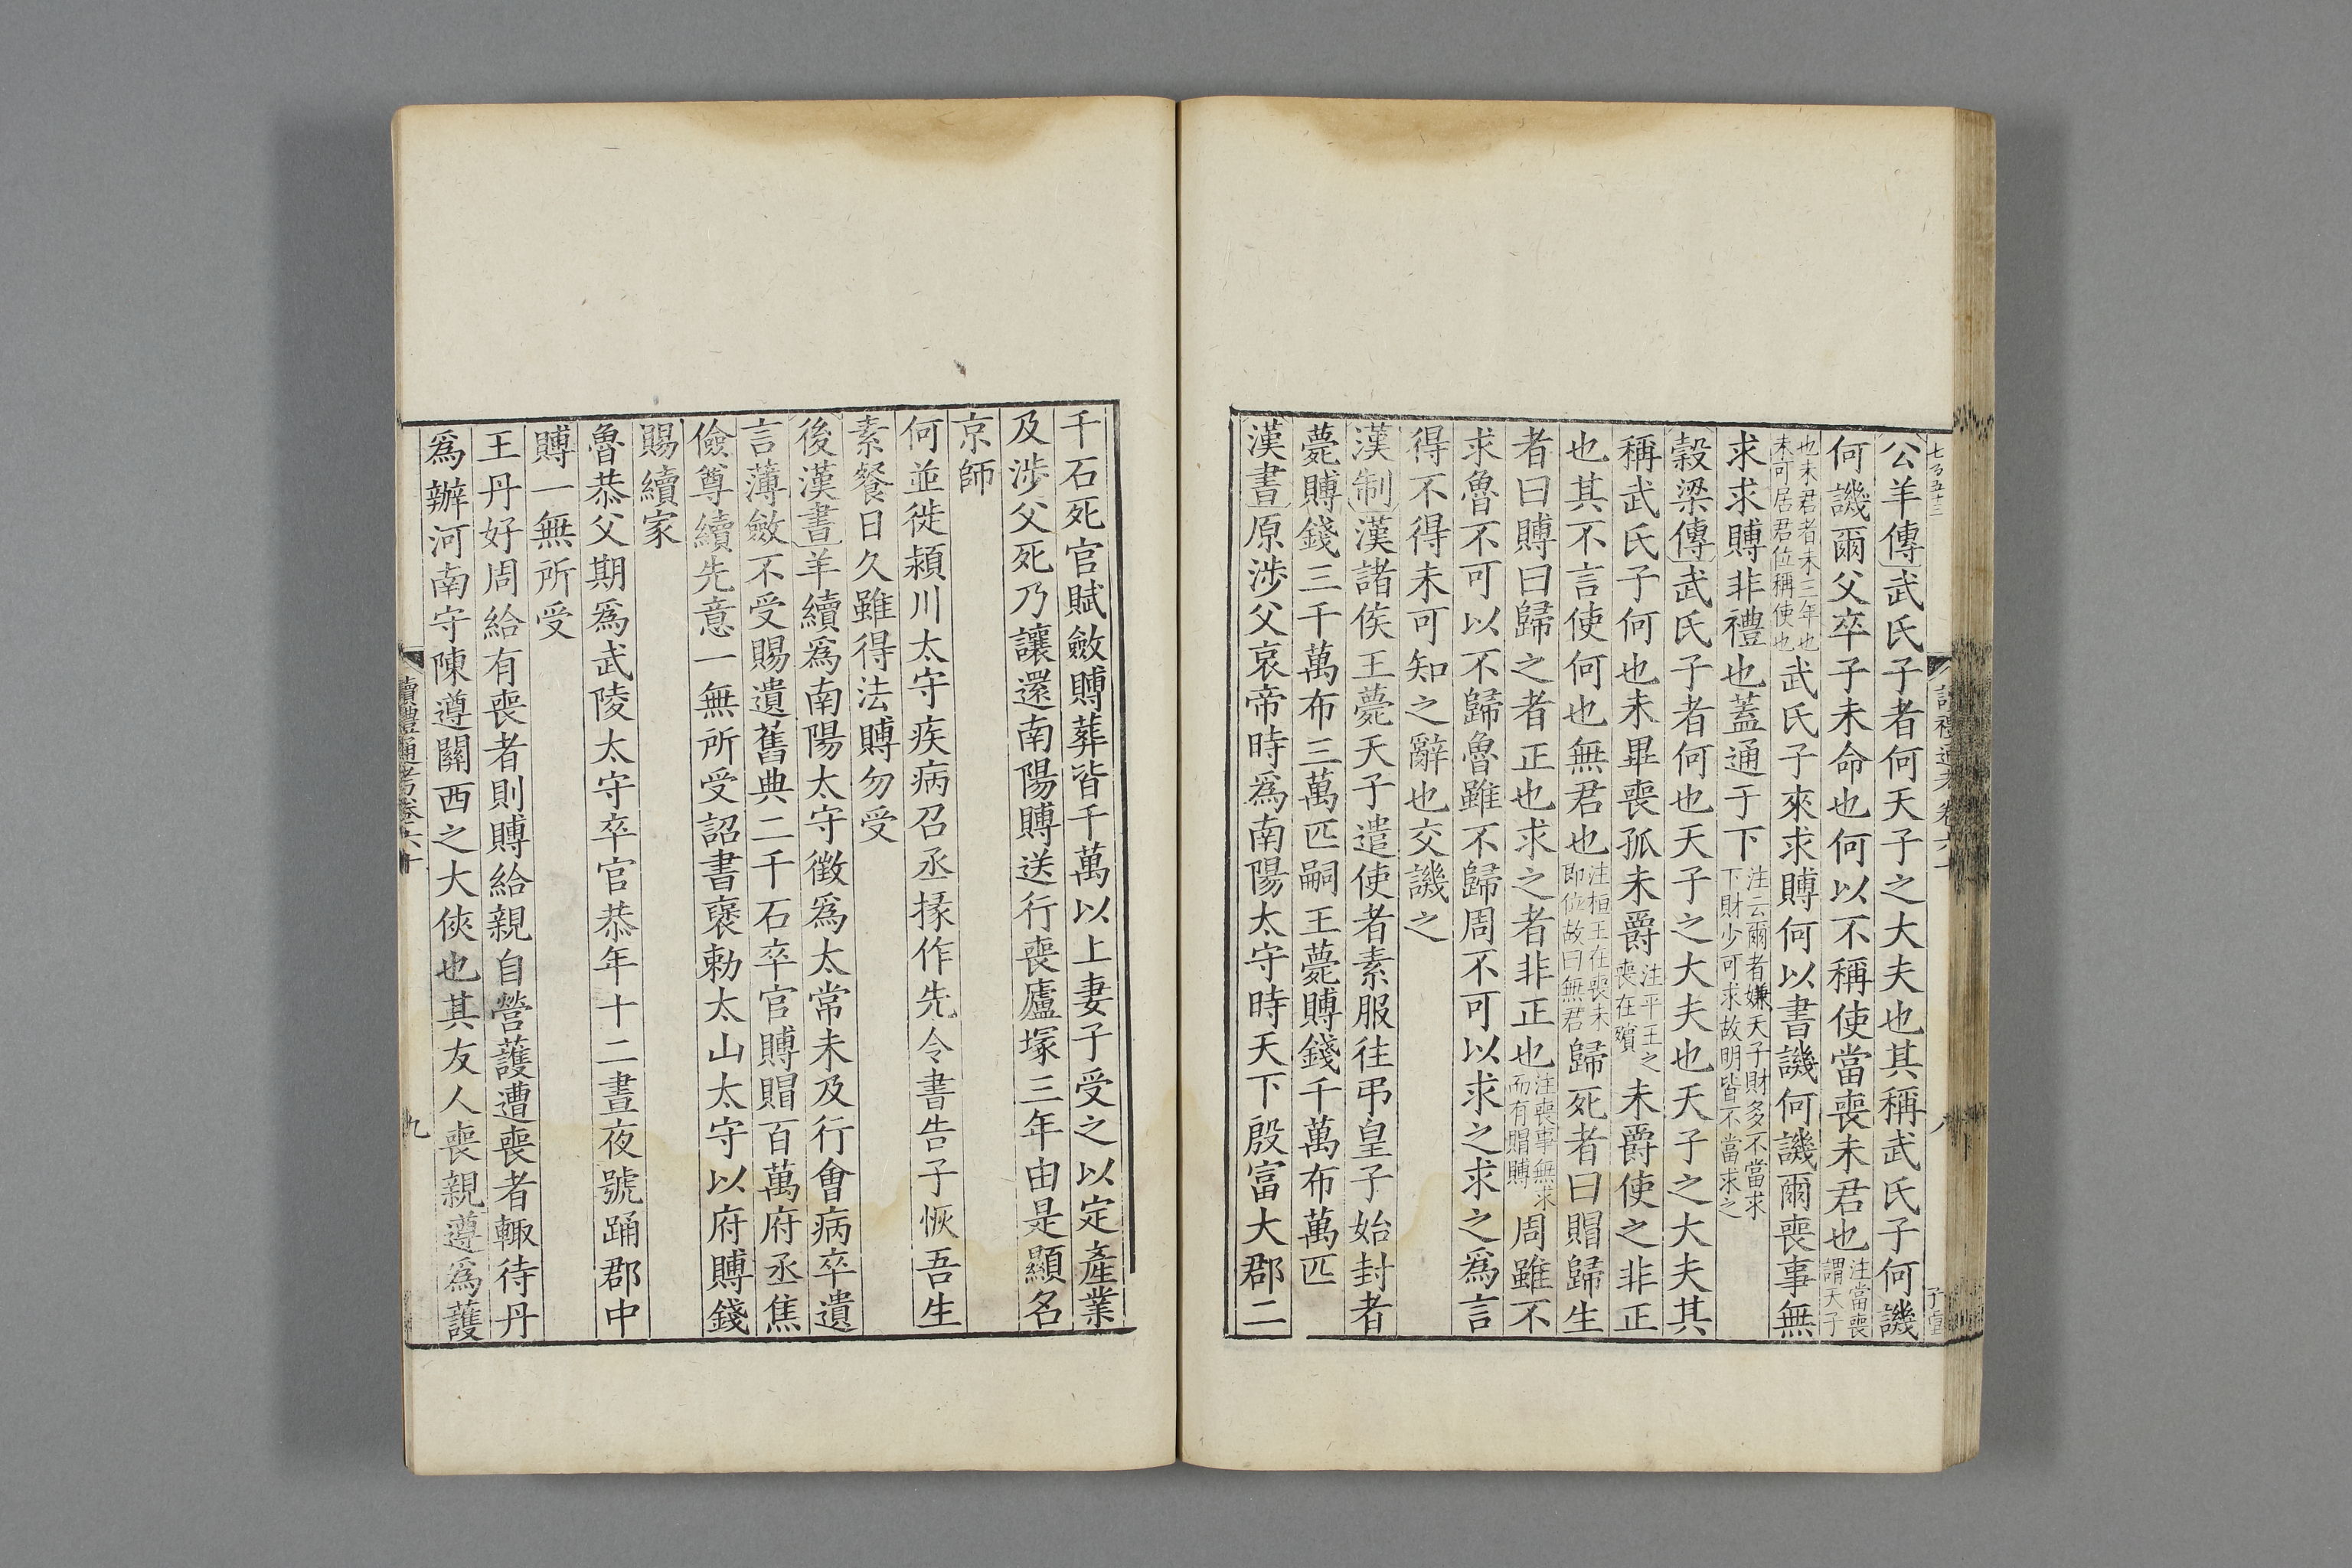 公羊傳武氏子者何天子之大夫也其稱武氏子何譏
何譏爾父卒子未命也何以不稱使當喪未君也注當喪謂天子
也未君者未三年也未可居君位稱使也武氏子來求賻何以書譏何譏爾喪事無
求求賻非禮也蓋通于下注云爾者嫌天子財多不當求下財少可求故明皆不當求之
穀梁傳武氏子者何也天子之大夫也天子之大夫其
稱武氏子何也未畢喪孤未爵注平王之喪在殯未爵使之非正
也其不言使何也無君也注桓王在喪未即位故曰無君歸死者曰賵歸生
者曰賻曰歸之者正也求之者非正也注喪事無求而有賵賻周雖不
求魯不可以不歸魯雖不歸周不可以求之求之爲言
得不得未可知之辭也交譏之
漢制漢諸侯王薨天子遣使者素服往弔皇子始封者
薨賻錢三千萬布三萬匹嗣王薨賻錢千萬布萬匹
漢書原涉父哀帝時爲南陽太守時天下殷富大郡二
千石死官賦斂賻葬皆千萬以上妻子受之以定產業
及涉父死乃讓還南陽賻送行喪廬塚三年由是顯名
京師
何並徙潁川太守疾病召丞掾作先令書告子恢吾生
素餐日久雖得法賻勿受
後漢書羊續爲南陽太守徵爲太常未及行會病卒遺
言薄斂不受賜遺舊典二千石卒官賻賵百萬府丞焦
儉尊續先意一無所受詔書褒勑太山太守以府賻錢
賜續家
魯恭父期爲武陵太守卒官恭年十二晝夜號踊郡中
賻一無所受
王丹好周給有喪者則賻給親自營護遭喪者輒待丹
爲辦河南守陳遵關西之大俠也其友人喪親遵爲護
讀禮通考卷六十
九